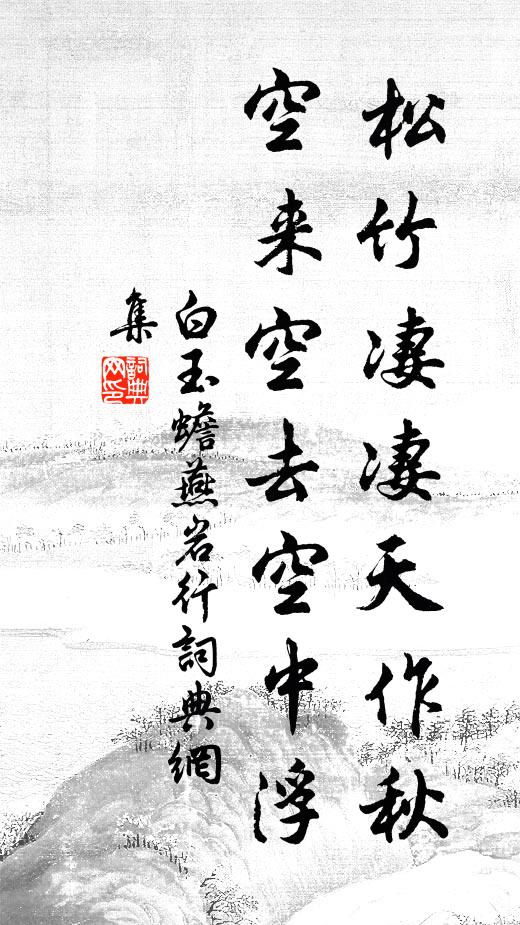 松竹凄凄天作秋
空来空去空中浮
白玉蟾燕岩行詞典網
集
詞典網印